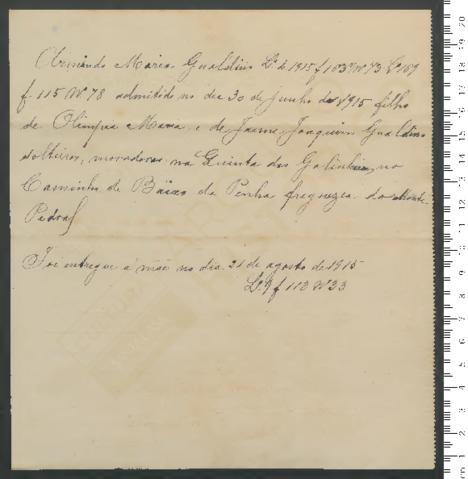 Armando Maria Gualdino Lº 2 1915 f 103 Nº 73 Lº 169
f. 115 Nº 78 admitido no dia 30 de junho de 1915 filho
de Olimpia Maria e de Jaime Joaquim Gualdino
solteiros, moradores na Quinta das Galinheiras, no
Caminho de Baixo da Penha freguezia do Monte
Pedral
Foi entregue á mãe no dia 21 de agosto de 1915
Lº 9 f 112 Nº 33